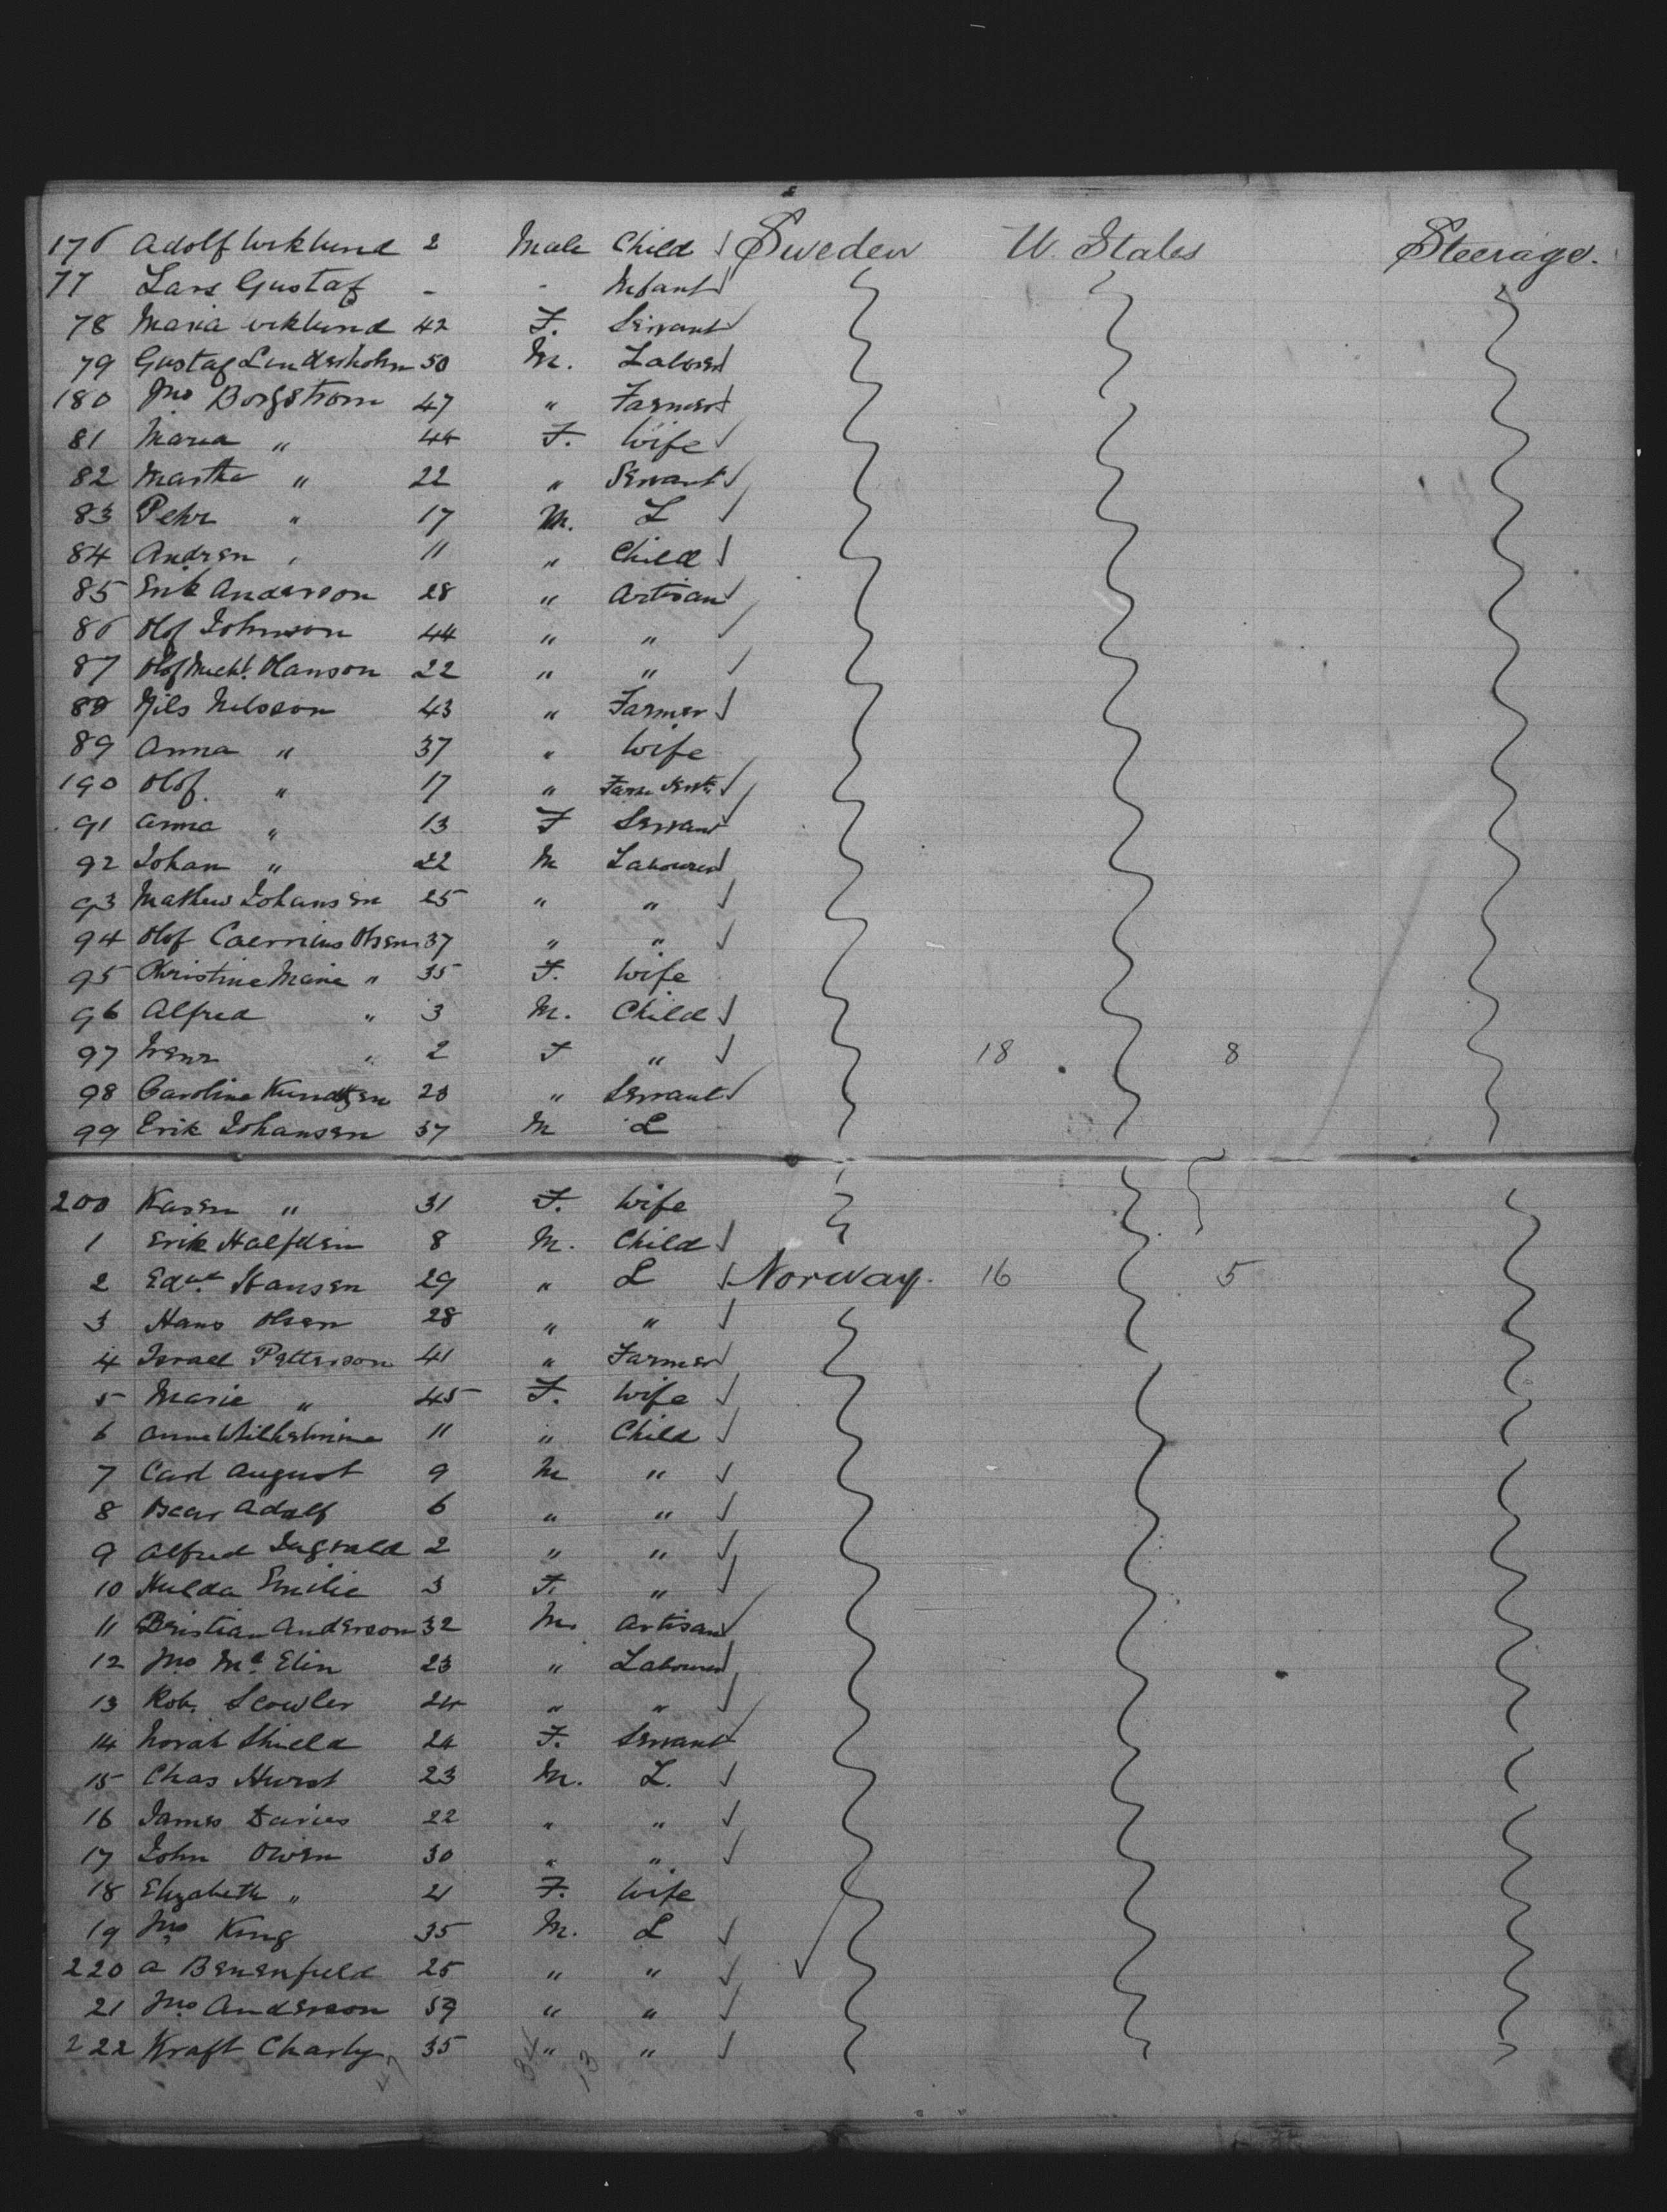 176 Adolf Wiklund 2 Male Child Sweden U. States Steerage.
77 Lars Gustaf - - Infant
78 Maria Wiklund 42 F. Servant
79 Gustaf Linderholm 50 M. Labourer
180 Jno Borgstrom 47 " Farmer
81 Maria " 44 F. Wife
82 Martha " 22 " Servant
83 Pehr " 17 M. L
84 Andren " 11 " Child
85 Erik Anderson 28 " Artisan
86 Olof Johnson 44 " "
87 Olof Hanson 22 " "
88 Nils Nelsson 43 " Farmer
89 Anna " 37 " Wife
190 Olof " 17 " Farm Servt.
91 Anna " 13 F Servant
92 Johan " 22 M Labourer
93 Mathew Johansen 25 " "
94 Olof Olsen 37 " "
95 Christine Marie " 35 F. Wife
96 Alfred " 3 M. Child
97 " 2 F " 18 8
98 Caroline Knudtzen 23 " Servant
99 Erik Johansen 37 M L
200 Karen " 31 F. Wife
1 Erik Halfden 8 M. Child
2 Edwd. Hansen 29 " L Norway. 16 5
3 Hans Olsen 28 " "
4 Israel Petterson 41 " Farmer
5 Marie " 45 F. Wife
6 Anna Wilhelmine 11 " Child
7 Carl August 9 M "
8 Oscar Adolf 6 " "
9 Alfred Ingvald 2 " "
10 Hulda Emilie 3 F. "
11 Anderson 32 M. Artisan
12 Jno Mc. Elin 23 " Labourer
13 Rob. Scowler 24 " "
14 Norah Shield 24 F. Servant
15 Chas Hurst 23 M. L.
16 James Davies 22 " "
17 John Owen 30 " "
18 Elizabeth " 21 F. Wife
19 Jno King 35 M. L
220 A Benenfield 25 " "
21 Jno Anderson 59 " "
222 Kraft Charly 35 " "
34 13